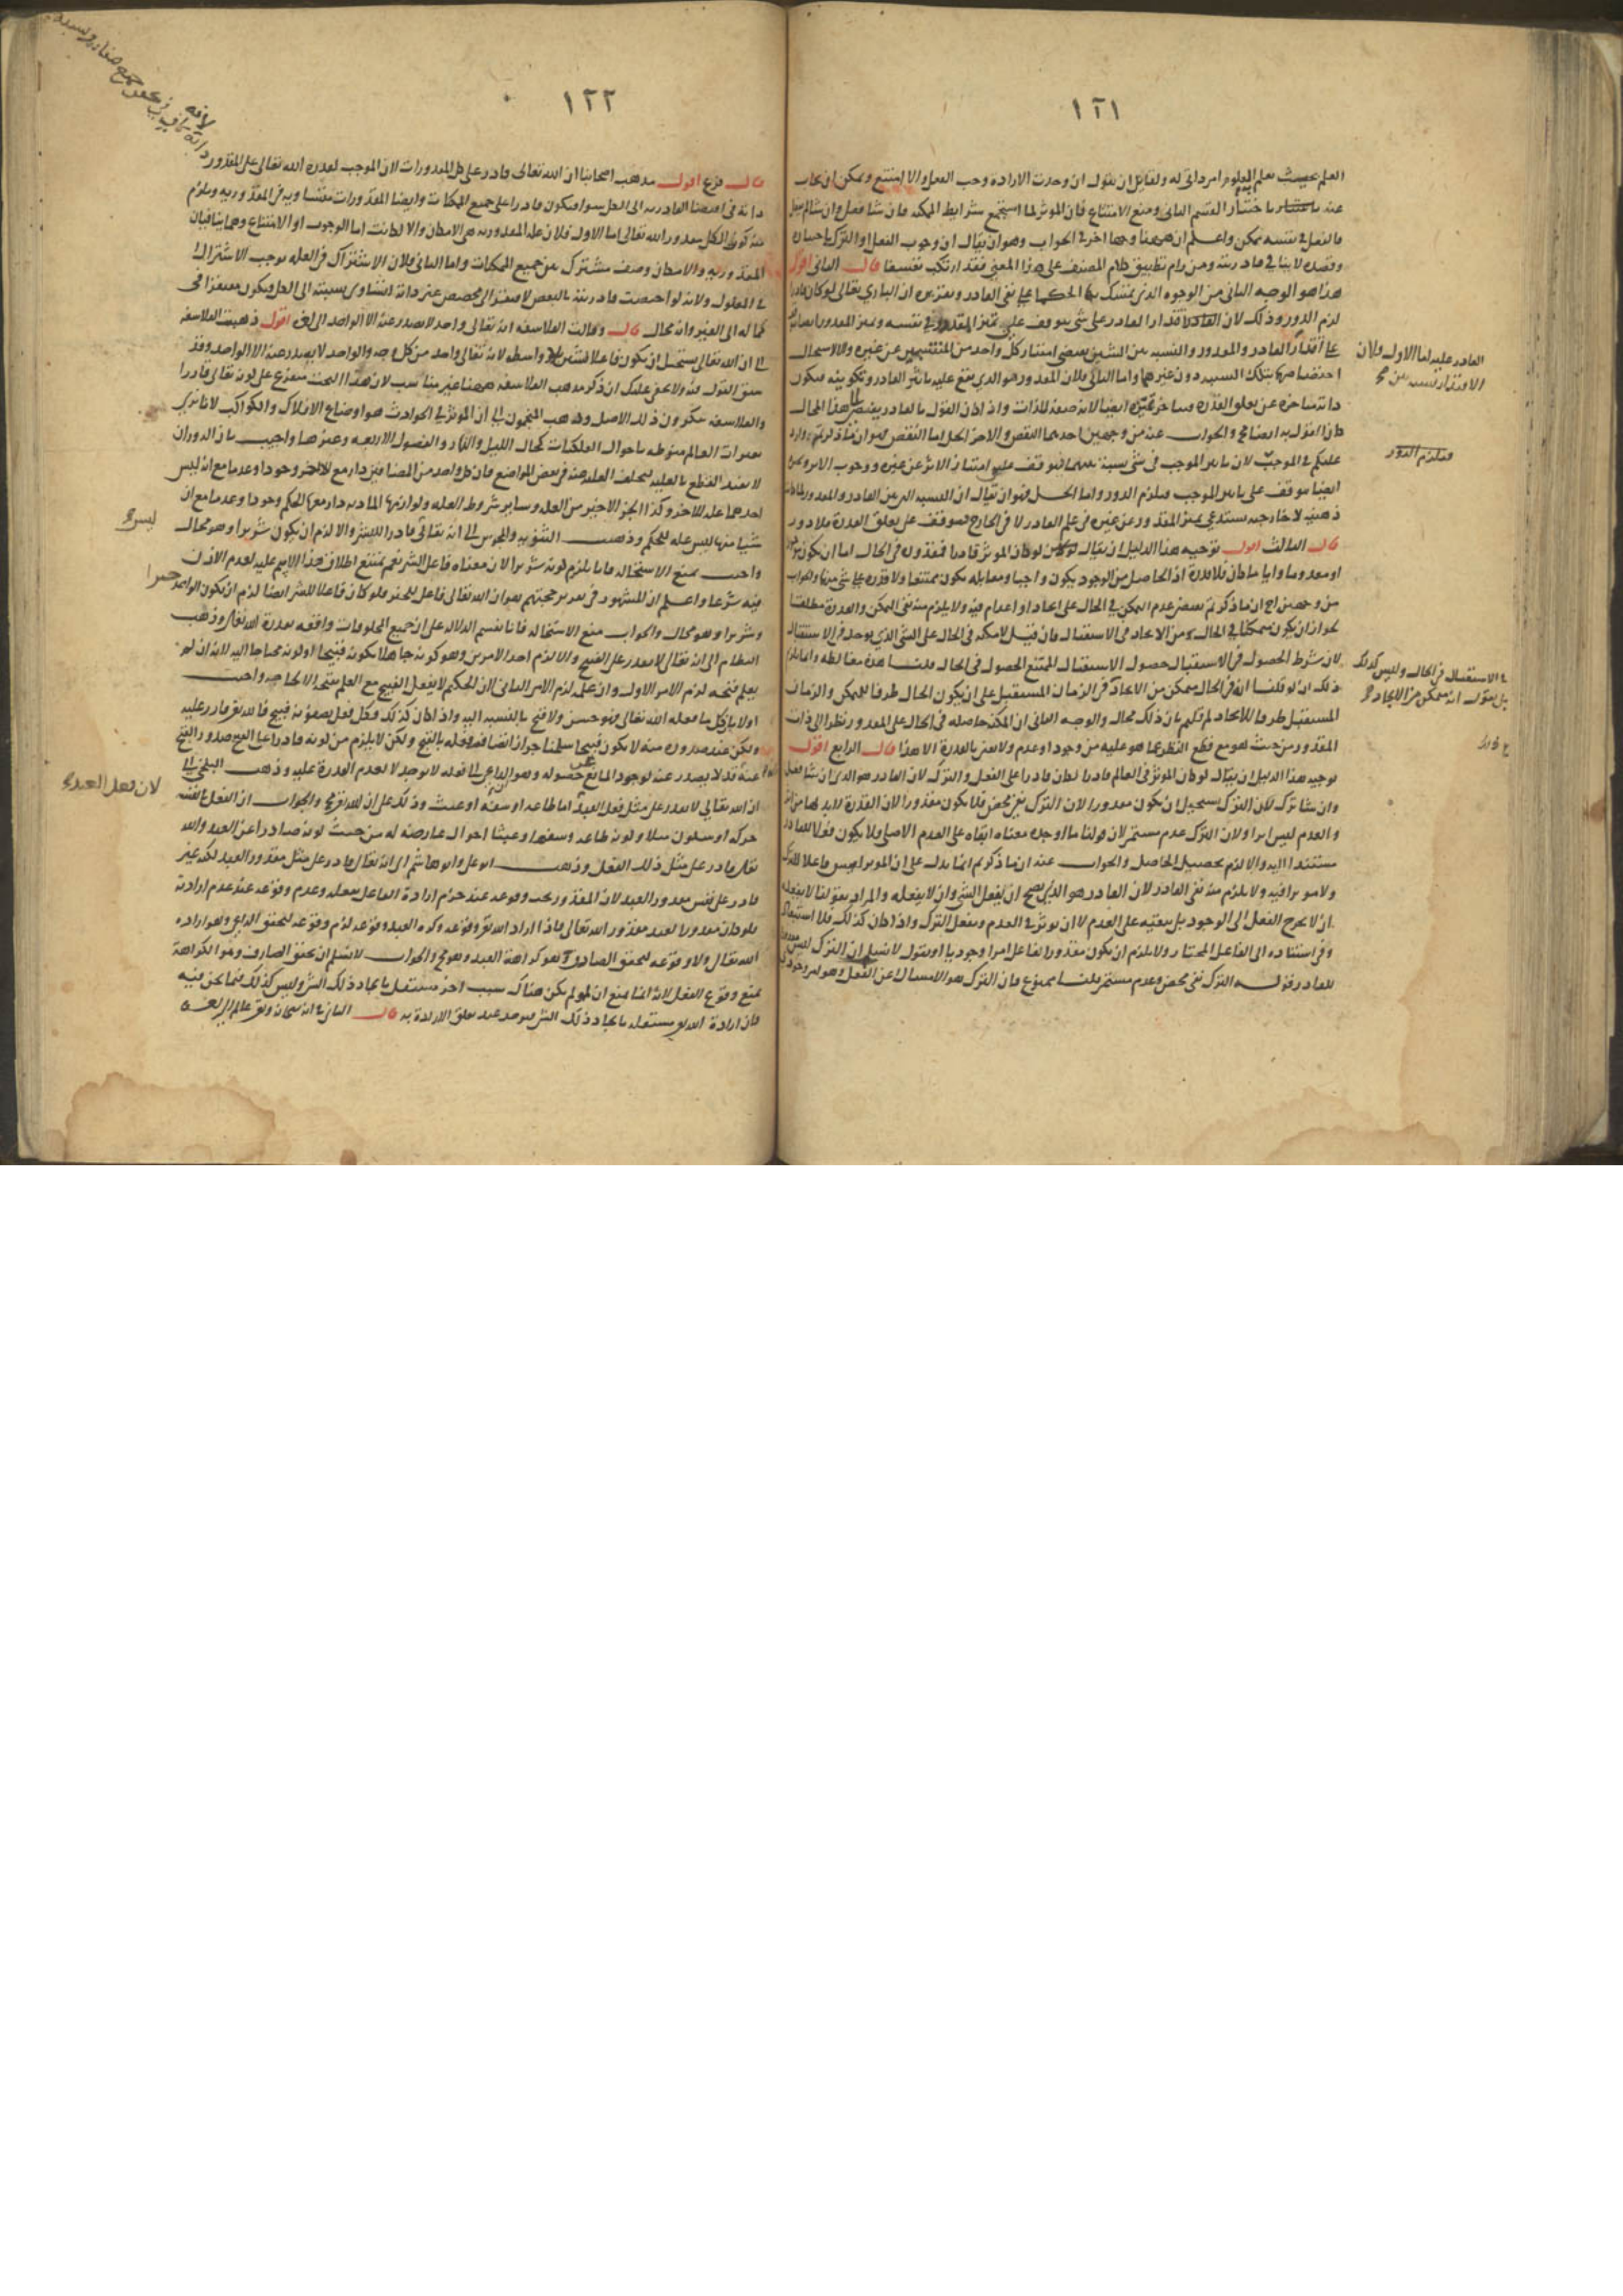 ١٢١
العلم بحيث تعلم المعلوم امر ذاتي له ولقايل ان يقول ان وجدت الارادة وجب الفعل والا امتنع ويمكن ان يجاب
عنه باختيار القسم الثاني ومنع الامتناع فان الموثر لما استجمع شرايط المكنه فان شا فعل وان شا لم يفعل
فالفعل في نفسه ممكن واعلم ان ههنا وجها اخر في الجواب وهو ان يقال ان وجوب الفعل او الترك باختياره
وقصده لا ينافي قادريته ومن رام تطبيق كلام المصنف على هذا المعنى فقد ارتكب تعسفا قال الثاني اقول
هذا هو الوجه الثاني من الوجوه الذي يتمسك بها الحكما على نفي القادر وتقريره ان الباري تعالى لو كان قادرا
لزم الدور وذلك لان اقتدار القادر على شي يتوقف على تميز المقدور في نفسه وتميز المقدور
على اقتدار القادر والمقدور والنسبه بين الشيين يقتضي امتياز كل واحد من المنتسبين عن غيره والا لاستحال
اختصاصهما بتلك النسبه دون غيرهما واما الثاني فلان المقدور هو الذي يقع عليه تاثير القادر وتكوينه فيكون
ذاته متاخره عن تعلق القدره
كان القول به ايضا مح والجواب عنه من وجهين احدهما النقض والاخر الحل اما النقض فهو ان ما ذكرتم وارد
عليكم في الموجب لان تاثير الموجب في شي نسبة بينهما فيتوقف على امتياز الاثر عن غيره ووجوب الاثر
ايضا يتوقف على تاثير الموجب فيلزم الدور واما الحل فهو ان يقال ان النسبه التي بين القادر والمقدور
ذهنيه لا خارجيه يستدعي تميز المقدور عن غيره في علم القادر لا في الخارج فيتوقف على تعلق القدرة فلا دور
قال الثالث اقول توجيه هذا الدليل ان يقال لو كان الموثر قادرا فقدرته في الحال اما ان يكون
او معدوما وايا ما كان فلا قدرة اذ الحاصل من الوجود يكون واجبا ومقابله يكون ممتنعا ولا قدره على شي منهما والجواب
لجواز ان يكون متمكنا في الحال من الايجاد في الاستقبال فان قيل لا مكنه في الحال على الشي الذي يوجد في الاستقبال
لان شرط الحصول في الاستقبال حصول الاستقبال الممتنع الحصول في الحال قلنا هذه مغالطه
ذلك ان لو قلنا انه في الحال متمكن من الايجاد في الزمان المستقبل على ان يكون الحال ظرفا للتمكن والزمان
المستقبل ظرفا للايجاد لم قلتم بان ذلك محال والوجه الثاني ان المكنه حاصله في الحال على المقدور نظرا الى ذات
المقدور من حيث هو مع قطع النظر عما هو عليه من وجود او عدم ولا نعني بالقدرة الا هذا قال الرابع اقول
توجيه هذا الدليل ان يقال لو كان الموثر في العالم قادرا لكان قادرا على الفعل والترك لان القادر هو الذي ان شا فعل
وان شا ترك لكن الترك يستحيل ان يكون مقدورا لان الترك نفي محض فلا يكون مقدورا لان القدرة لا بد لها من اثر
والعدم ليس اثرا ولان الترك عدم مستمر لان قولنا ما اوجده معناه ابقاه على العدم الاصلي فلا يكون
مستندا اليه والا لزم تحصيل الحاصل والجواب عنه ان ما ذكرتم انما يدل على ان الموثر ليس فاعلا للترك
ولا موثرا فيه ولا يلزم منه نفي القادر لان القادر هو الذي يصح ان يفعل الشي وان لا يفعله والمراد بقولنا لا يفعله
ان لا يخرج الفعل الى الوجود بل يبقيه على العدم لا ان يوثر في العدم ويفعل الترك واذا كان كذلك فلا استبعاد
وفي استناده الى الفاعل المختار ولا يلزم ان يكون مقدورا لفاعل امرا وجوديا او نقول لا نسلم ان الترك
للقادر قوله الترك نفي محض وعدم مستمر قلنا ممنوع فان الترك هو الامساك عن الفعل وهو امر وجودي
القادر عليه اما الاول فلان
الاقتدار نسبه بين
فيلزم الدور
في الاستقبال في الحال وليس كذلك
بل نقول انه متمكن من الايجاد
١٢٢
قال فرع اقول مذهب اصحابنا ان الله تعالى قادر على كل المقدورات لان الموجب لقدرة الله تعالى على المقدور
ذاته في اقتضا القادريه الى الكل سوا فيكون قادرا على جميع الممكنات وايضا المقدورات متساويه في المقدوريه ويلزم
منه كون الكل مقدور الله تعالى اما الاول فلان علة المقدوريه هي الامكان والا لكانت اما الوجوب او الامتناع وهما ينافيان
المقدوريه والامكان وصف مشترك بين جميع الممكنات واما الثاني فلان الاشتراك في العله يوجب الاشتراك
في المعلول ولانه لو اختصت قادريته بالبعض لافتقر الى مخصص غير ذاته لتساوي نسبته الى الكل ويكون مفتقرا في
كماله الى الغير وانه محال قال وقالت الفلاسفه انه تعالى واحد لا يصدر عنه الا الواحد الى اخره اقول ذهبت الفلاسفه
الى ان الله تعالى يستحيل ان يكون فاعلا لشيئين بلا واسطه لانه تعالى واحد من كل وجه والواحد لا يصدر عنه الا الواحد وقد
سبق القول فيه ولا يخفى عليك ان ذكر مذهب الفلاسفه ههنا غير مناسب لان هذا البحث متفرع على كونه تعالى قادرا
والفلاسفه ينكرون ذلك الاصل وذهب المنجمون الى ان الموثر في الحوادث هو اوضاع الافلاك والكواكب لانا نرى
تغيرات العالم منوطه باحوال الفلكيات كحال الليل والنهار والفصول الاربعه وغيرها واجيب بان الدوران
لا يفيد القطع بالعليه لتخلف العليه عنه في بعض المواضع فان كل واحد من المضافين دار مع الاخر وجودا وعدما مع انه ليس
احدهما عله للاخر وكذا الجزء الاخير من العله وساير شروط العله ولوازمها المساويه دار معها الحكم وجودا وعدما مع ان
شيا منها ليس عله للحكم وذهب الثنويه والمجوس الى انه تعالى قادرا للشر والا لزم ان يكون شريرا وهو محال
واجيب بمنع الاستحاله فانا يلزم كونه شريرا لان معناه فاعل الشر نعم يمتنع اطلاق هذا الاسم عليه لعدم الاذن
فيه شرعا واعلم ان المشهور في تقرير حجتهم هو ان الله تعالى فاعل للخير فلو كان فاعلا للشر ايضا لزم ان يكون الواحد خيرا
وشريرا وهو محال والجواب منع الاستحاله فانا نقيم الدلاله على ان جميع المخلوقات واقعه بقدرة الله تعالى وذهب
النظام الى انه تعالى لا يقدر على القبيح والا لزم احد الامرين وهو كونه جاهلا بكونه قبيحا او كونه محتاجا اليه لانه ان لم
يعلم قبحه لزم الامر الاول وان علمه لزم الامر الثاني لان الحكيم لا يفعل القبيح مع العلم بقبحه الا لحاجه واجيب
اولا بان كل ما فعله الله تعالى فهو حسن ولا قبح بالنسبه اليه واذا كان كذلك فكل فعل يصفونه قبيح فالله تعالى قادر عليه
ولكن عند صدوره منه لا يكون قبيحا
عنه قد لا يصدر عنه لوجود المانع عن حصوله وهو الداعي الى فعله لا يوجد لا لعدم القدرة عليه وذهب البلخي الى
ان الله تعالى لا يقدر على مثل فعل العبد اما طاعه او سفه او عبث وذلك على الله تعالى مح والجواب ان الفعل في نفسه
حركه او سكون مثلا وكونه طاعه وسفها وعبثا احوال عارضه له من حيث كونه صادرا عن العبد والله
تعالى قادر على مثل ذلك الفعل وذهب ابو علي وابو هاشم الى انه تعالى قادر على مثل مقدور العبد لكنه غير
قادر على نفس مقدور العبد لان المقدور يجب وقوعه عند حزم ارادة الفاعل بفعله وعدم وقوعه عند عدم ارادته
فلو كان مقدورا لعبد مقدور الله تعالى فاذا اراد الله تعالى وقوعه وكره العبد وقوعه لزم وقوعه لتحقق الداعي وهو اراده
الله تعالى ولا وقوعه لتحقق الصارف وهو كراهة العبد وهو مح والجواب لا نسلم ان تحقق الصارف وهو الكراهة
يمنع وقوع الفعل لانه انما يمنع ان لو لم يكن هناك سبب اخر مستقل بايجاد ذلك الشي وليس كذلك فيما نحن فيه
فان ارادة الله تعالى مستقله بايجاد ذلك الشي فيوجد عند تعلق الارادة به قال الثاني في انه سبحانه وتعالى عالم
لان فعل العبد